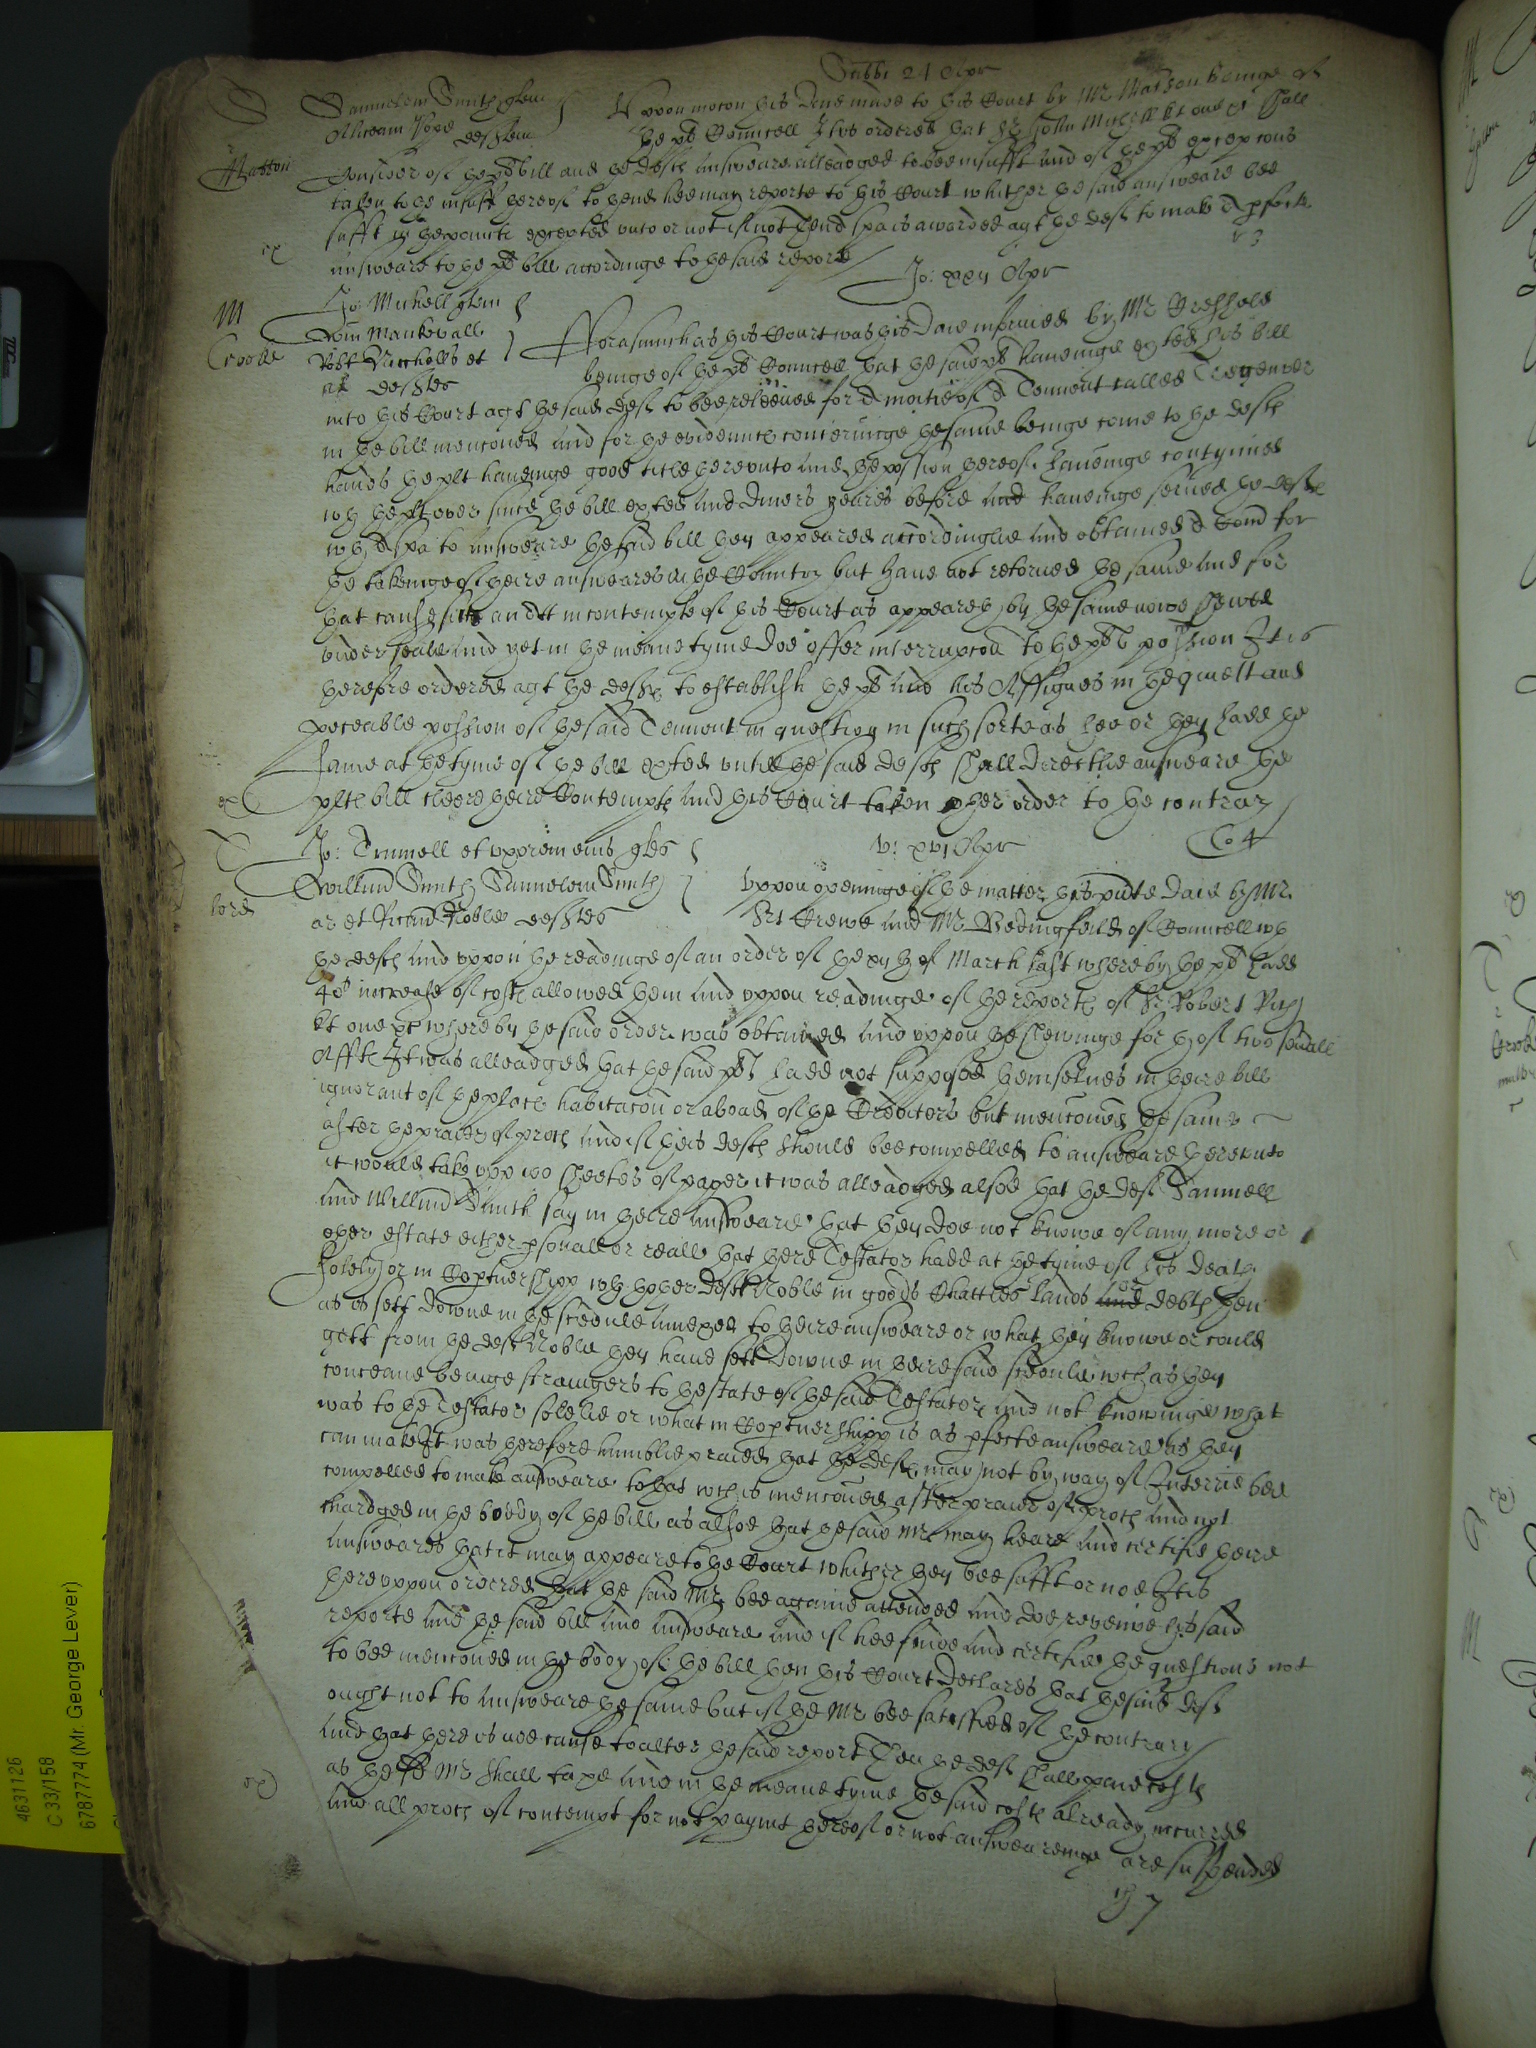 Sabbi 21 Apr
S
Samuelem Smith quer
Aliceam Pope deften
Uppon motion this daie made to this Court by Mr Matson beinge of
the pts Councell It is ordered that Sr John Michell kt one &c shall
Matson
consider of the pts bill and the defts answeare alleadged to bee insufft and of the pts exceptions
taken to the insuff thereof to thend hee may reporte to this Court whither the said answeare bee
sufft in the points excepted unto or not if not then spa is awarded agt the deft to make a pfecte
ex
answeare to the pts bill accordinge to the said reporte
v 3
Jo: xxvi Apr
M
Crooke
Jo: Michell quer
Tom Mankevall
Robt Niccholls et
al deftes
Forasmuch as this Court was this daie informed by Mr
beinge of the pts Councell that the said pt haveinge exted his bill
into this Court agt the said deft to bee releeved for a moitie of a Tenement called Tregender
in the bill mencioned and for the evidence concerninge the same beinge come to the defts
hands the plt haveinge good title thereunto and the possion thereof haveinge contynued
wth the plt ever since the bill exted and divers yeares before and haveinge served the defts
wth a spa to answeare the said bill they appeared accordinglie and obtained a Comd for
the takeinge of theire answeares in the Countrey but have not retorned the same and for
that cause sitt and in contempte of this Court as appeareth by the same nowe shewed
under seale and yet in the meane tyme doe offer interrupcon to the pts possion It is
therefore ordered agt the defts to establish the pt and his Assignes in the quiett and
peceable possion of the said Tenemt in question in such sorte as hee or they hadd the
same at the tyme of the bill exted untill the said defts shall directlie answeare the
ex
plts bill cleere theire Contempte and this Court taken other order to the contrary
T
Jo: Trunell et uxorem eius quer
Willum Smith Samuelem Smith
ar et Ricum Noble deftes
v: xxvi Apr
Co 4
lord
Uppon openinge of the matter this pnte daie by Mr
Srt Crewe and Mr Bedingfeild of Councell wth
the defts and uppon the readinge of an order of the xvth of March last whereby the pts hadd
40s increase of costs allowed them and uppon readinge of the reporte of Sr Robert Rich
kt one &c whereby the said order was obtained and uppon the shewinge forth of two severall
Affts It was alleadged that the said pts hadd not supposed themselves in theire bill
ignorant of the place habitacon or aboad of the Creditors but mencioned the same
after the praier of proces and if this defts should bee compelled to answeare thereunto
it would take upp 100 sheetes of paper it was alleadged alsoe that the deft Samuell
and Willum Smith say in theire answeare that they doe not knowe of any more or
other estate either psonall or reall that there Testator hadd at the tyme of his death
solely or in Coptnershipp wth thother deft Noble in goods Chattles lands or debts then
as is sett downe in the scedule annexed to theire answeare or what they knowe or could
gett from the deft Noble they have sett downe in theire said scedule wch as they
conceave beinge strangers to the state of the said Testator and not knowinge what
was to the Testator solelie or what in Coptnershipp is as pfecte answeare as they
can make It was therefore humblie praied that the defts may not by way of Interrie bee
compelled to make answeare to that wch is mencioned after praier of proces and not
chardged in the boddy of the bill as alsoe that the said Mr may heare and certifie theire
answeares that it may appeare to the Court whither they bee sufft or noe It is
thereuppon ordered that the said Mr bee againe attended and doe reveiwe his said
reporte and the said bill and answeare and if hee finde and certifie the questions not
to bee mencioned in the body of the bill then this Court declares that the said deft
ought not to answeare the same but if the Mr bee satisfied of the contrary
and that there is noe cause to alter the said report Then the deft shall paie costs
ex
as the sd Mr shall taxe and in the meane tyme the said costs already incurred
and all proces of contempt for not paymt thereof or not answearinge are suspended
th 7
4631126
C 33/158
6787774 (Mr. George Lever)